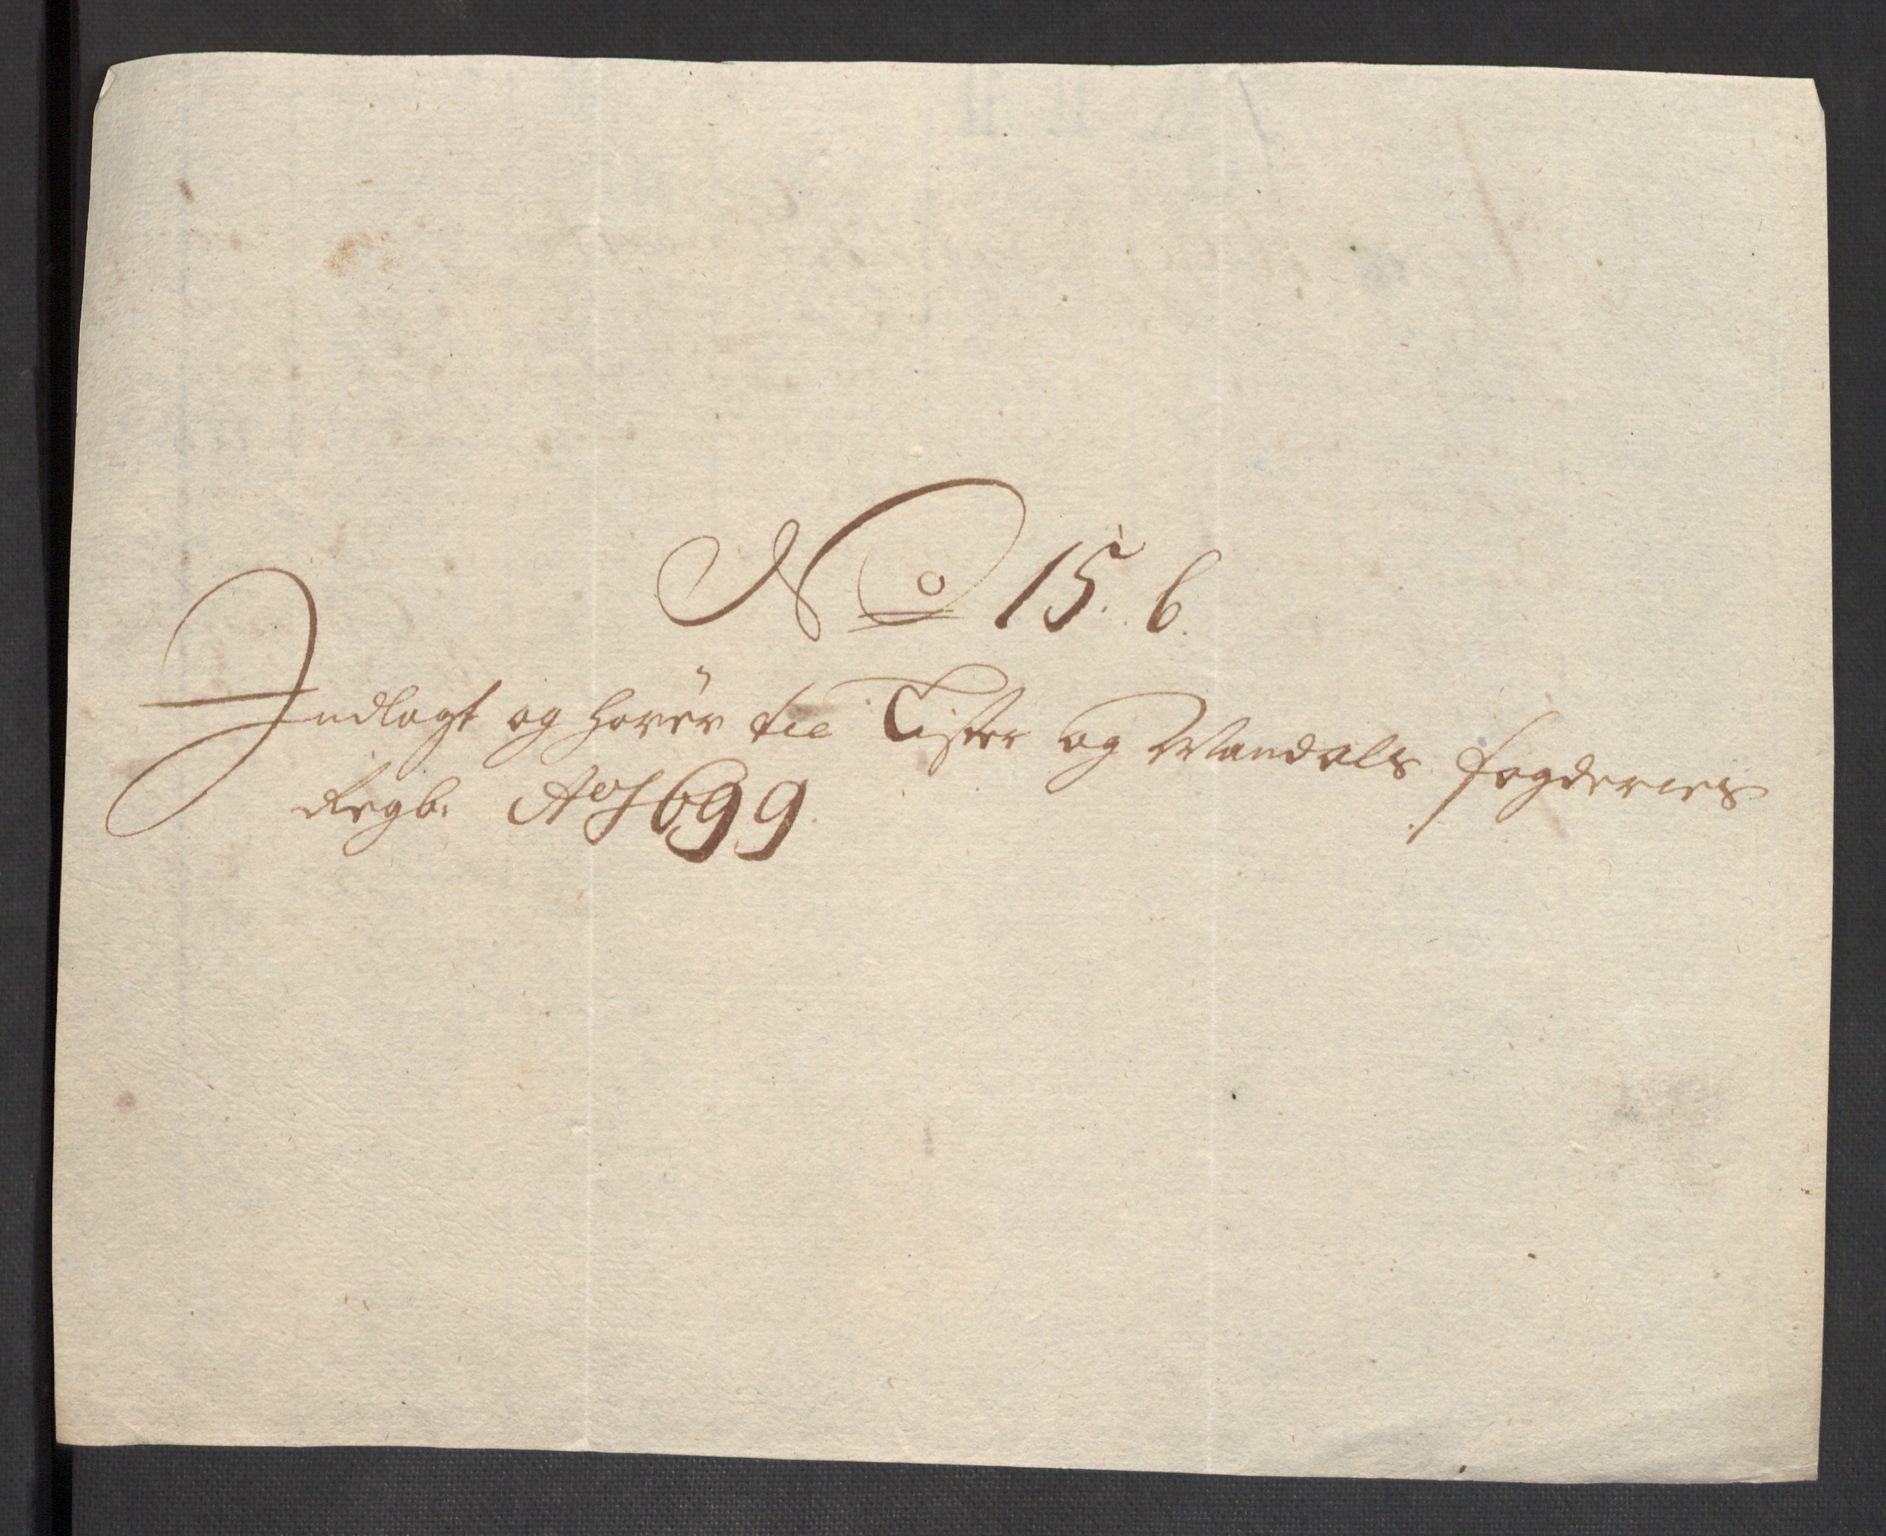 No 15. b.
Indlagt og hörer til Lister og Mandals fogderies
Regb: Ao 1699.